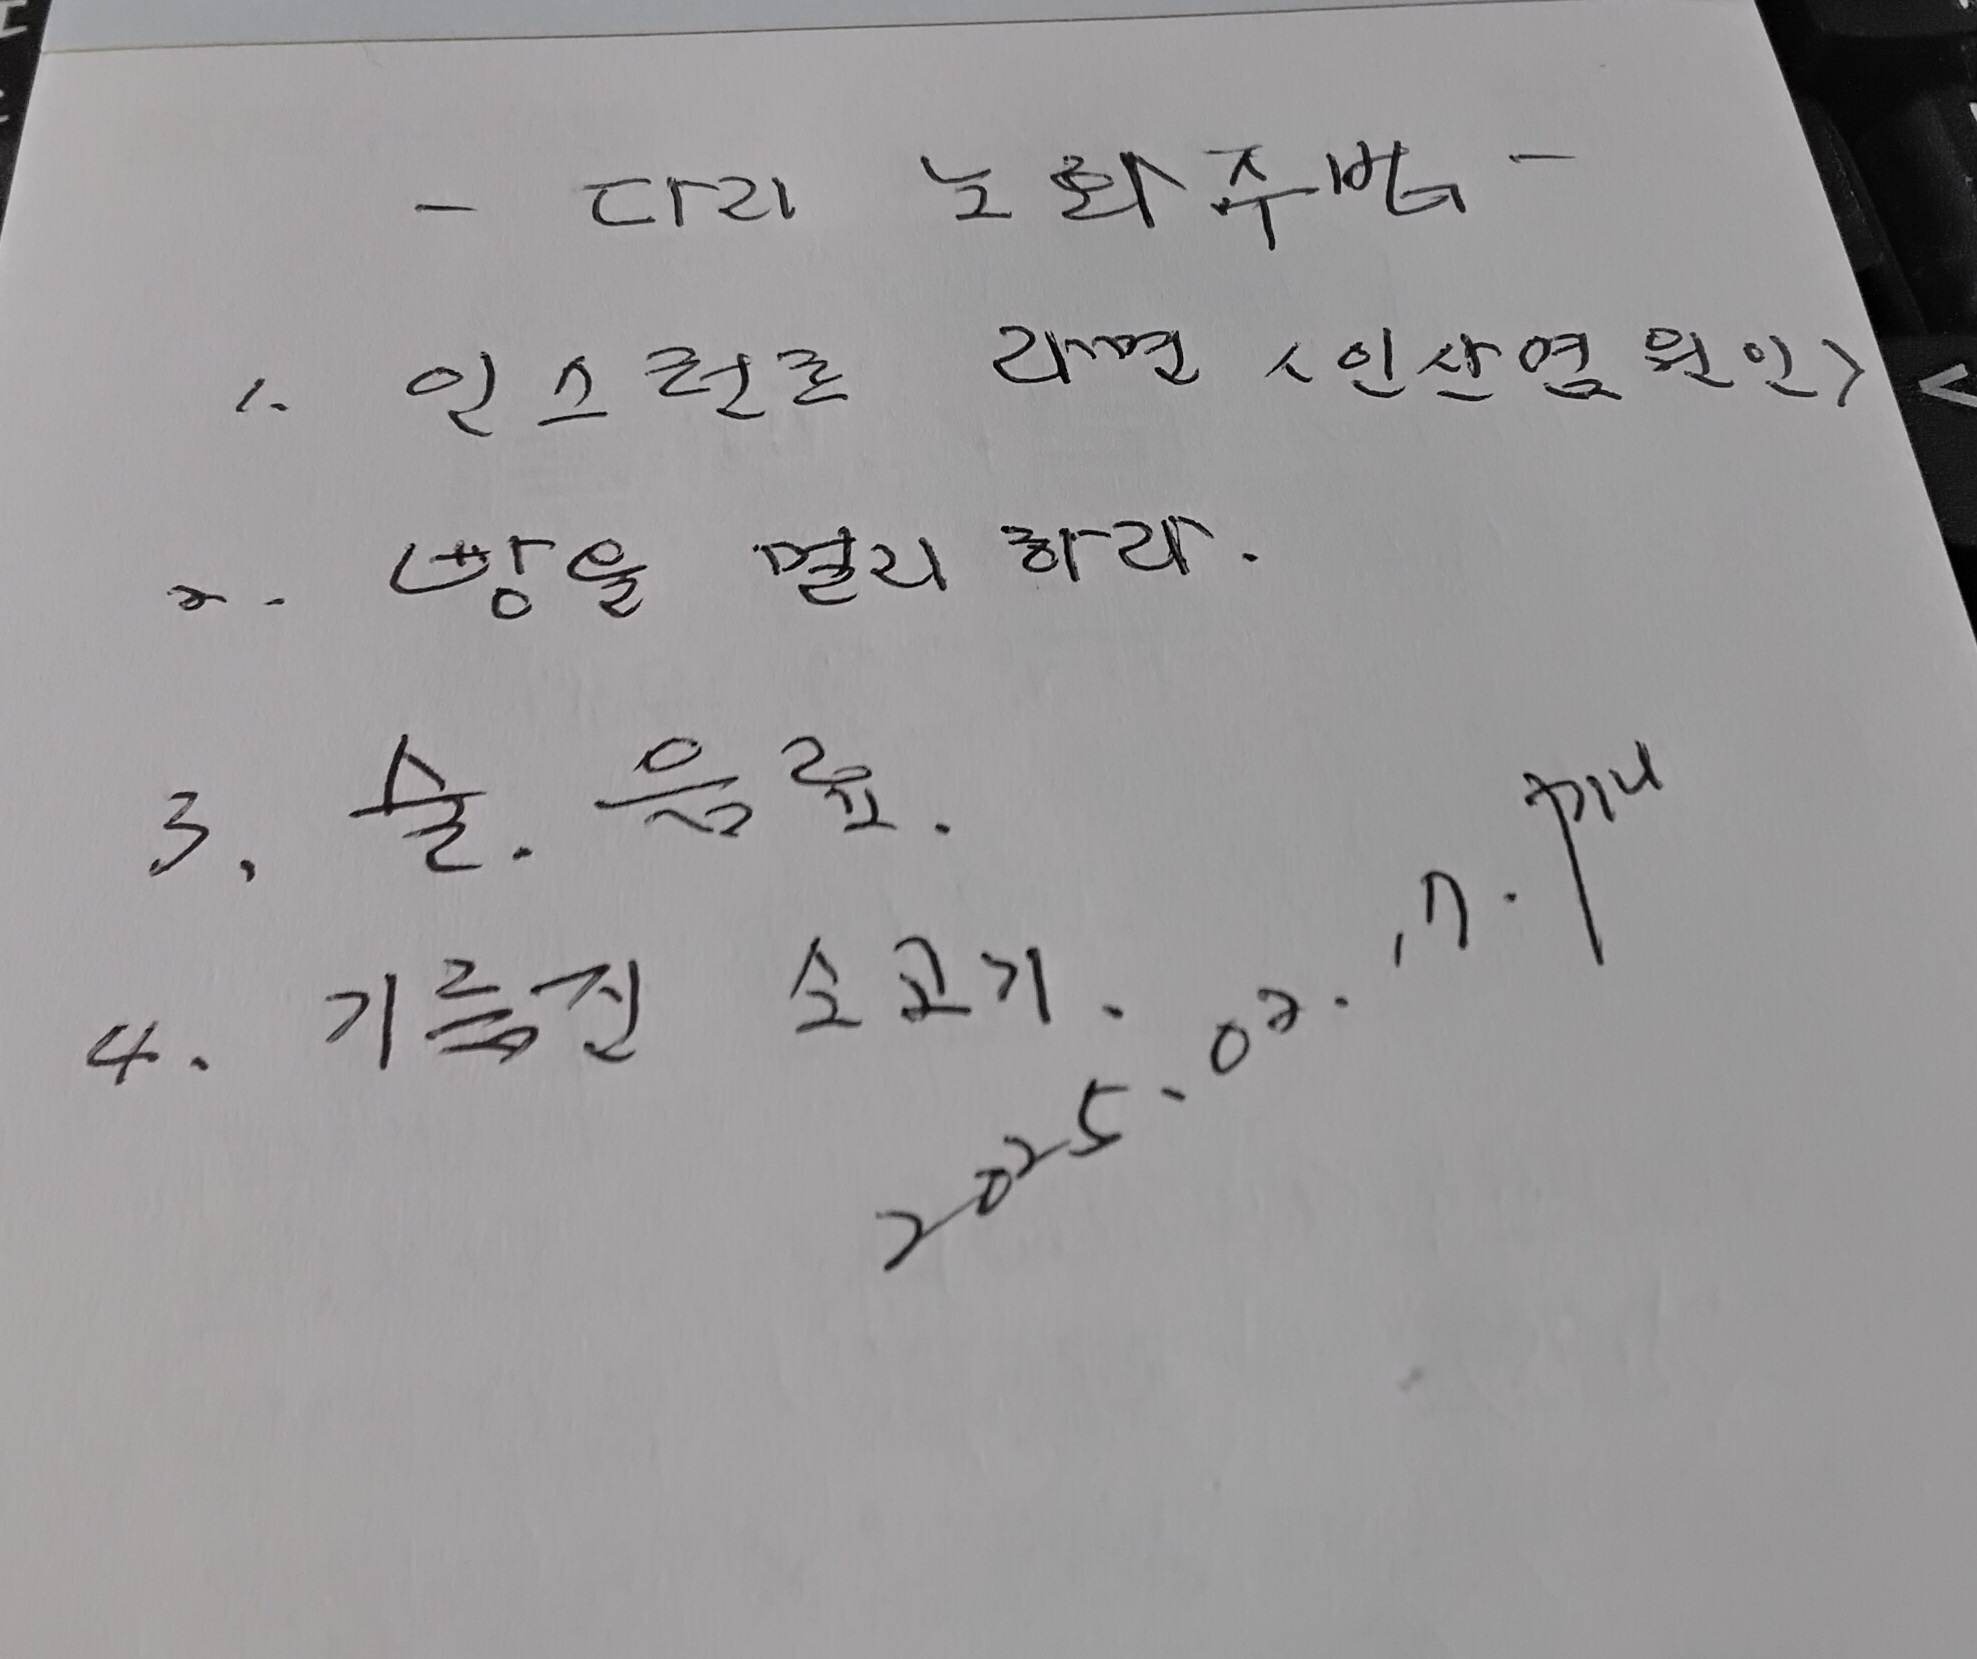 - 다리 노화주범 -
1. 인스턴트 라면 <인산염원인>
2. 빵을 멀리 하라.
3. 술. 음료.
4. 기름진 소고기.
2025.02.17.